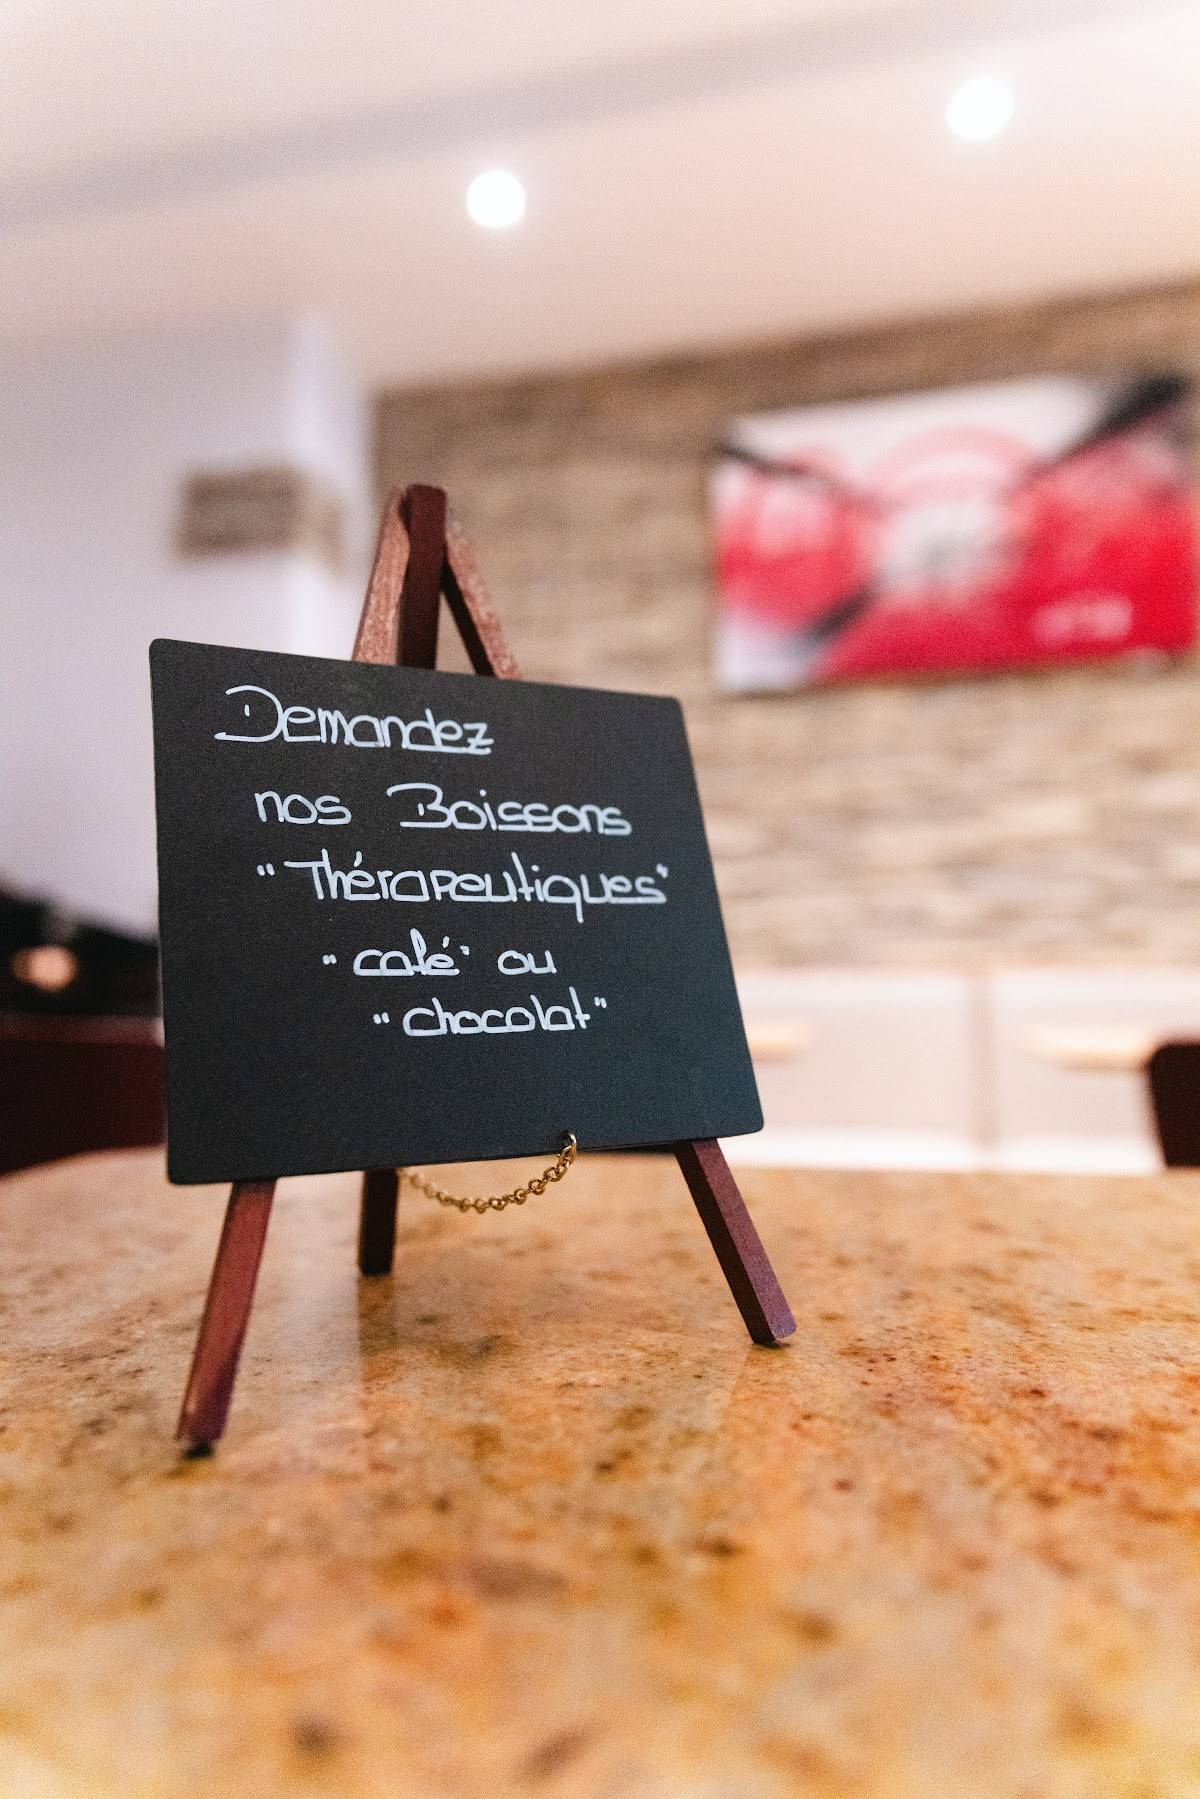 Demandez
nos Boissons
"Thérapeutiques"
"café" ou
"chocolat"